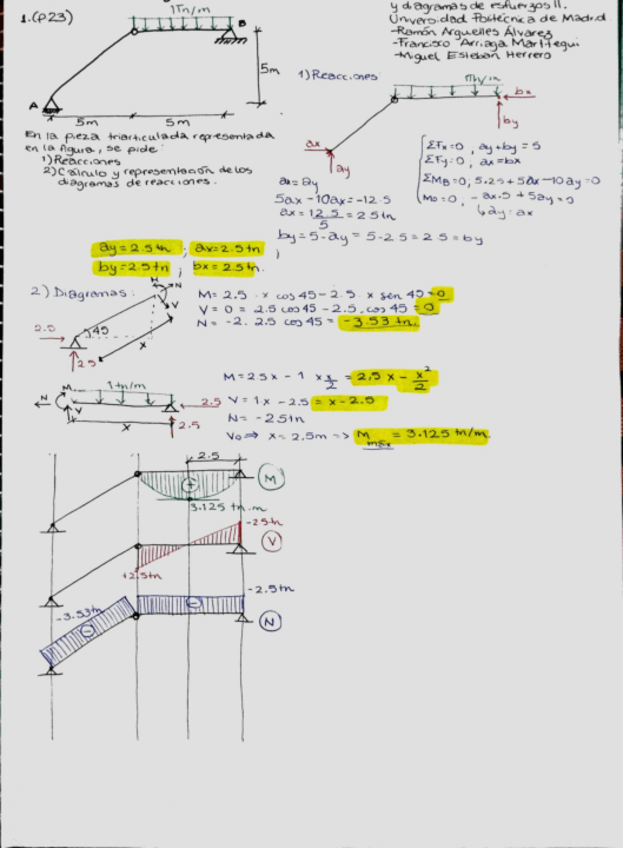 1.(P23)
1Tn/m
B
5m
A
5m
5m
y diagramas de esfuerzos II.
Universidad Politécnica de Madrid
-Ramón Arguelles Álvarez
-Francisco Arriaga Martitegui
-Miguel Esteban Herrero
En la pieza triarticulada representada
en la figura, se pide:
1) Reacciones
2) Cálculo y representación de los
diagramas de reacciones.
1) Reacciones:
1Tn/m
bx
by
ax
ay
ΣFx=0, ay+by=5
ΣFy=0, ax=bx
ΣMB=0, 5·2.5+5ax-10ay=0
M0=0, -ax·5+5ay=0
↳ay=ax
ax=ay
5ax-10ax=-12.5
ax=12.5/5=2.5tn
by=5-ay=5-2.5=2.5=by
ay=2.5tn ; ax=2.5tn ;
by=2.5tn ; bx=2.5tn.
2) Diagramas:
M
N
V
45
x
2.5
2.5
M= 2.5 · x cos 45-2.5 · x sen 45=0
V=0= 2.5 cos 45-2.5 · cos 45=0
N= -2. 2.5 cos 45= -3.53 tn.
M
1tn/m
N
V
x
2.5
2.5
M=2.5x-1·x x/2=2.5x-x²/2
V=1·x-2.5=x-2.5
N=-2.5tn
V0=> x=2.5m => Mmax=3.125 tn/m.
2.5
+
M
3.125 tn.m
-2.5tn
V
+2.5tn
-3.53tn
-
-
-2.5tn
N